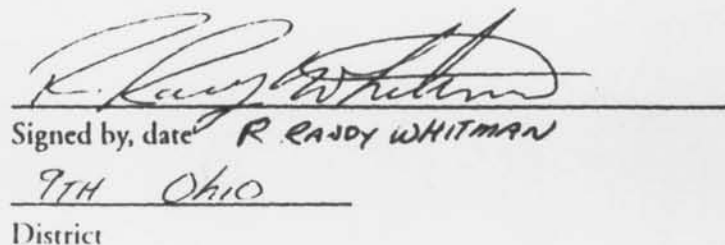 R. Randy Whitman
Signed by, date R RANDY WHITMAN
9TH Ohio
District